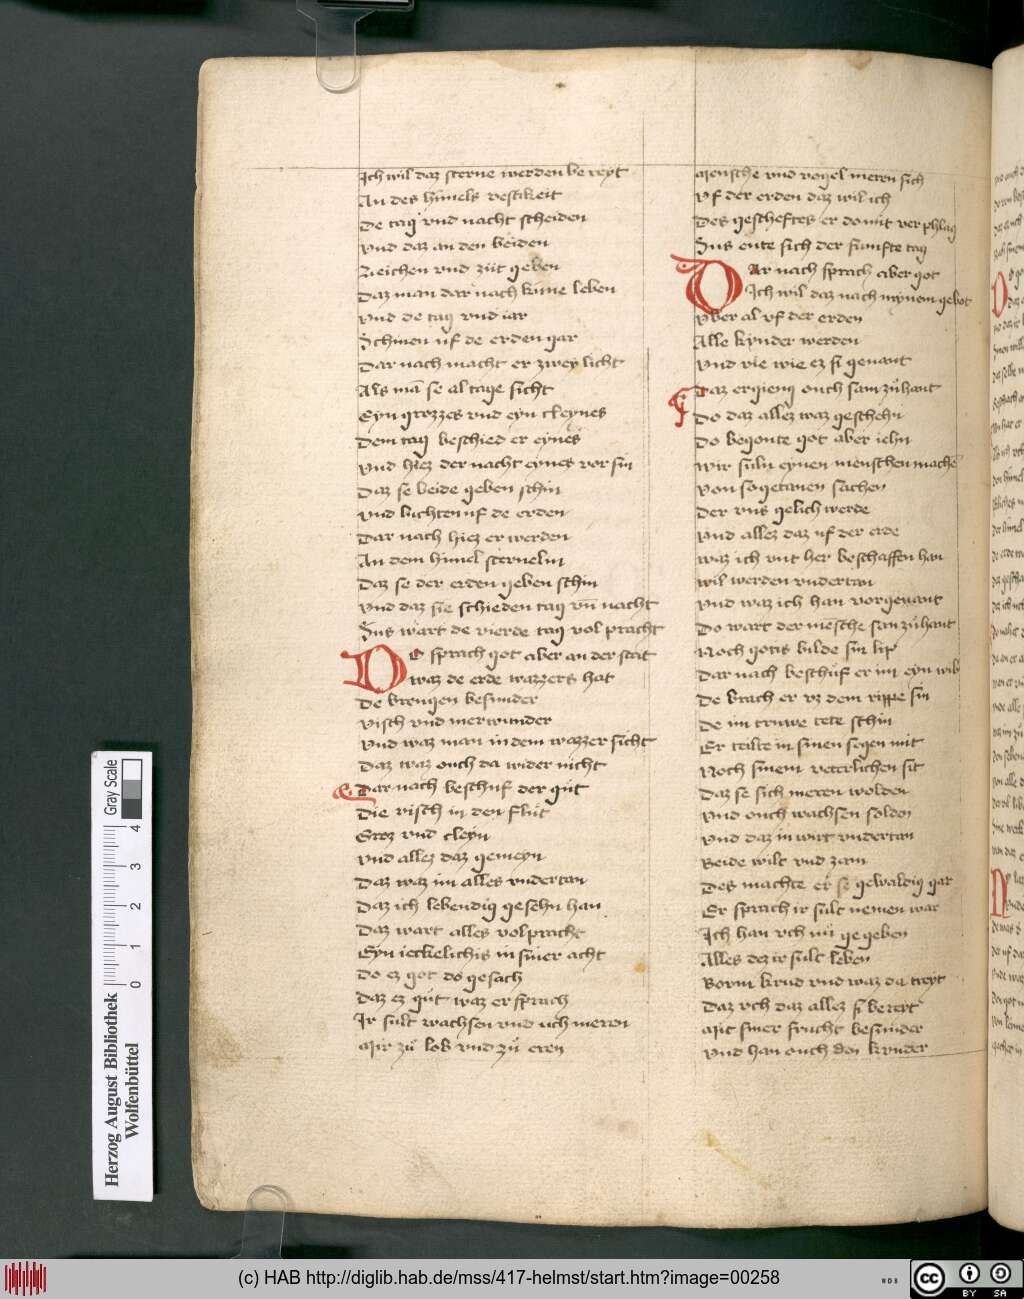 Ich wil daz sterne werden be reyt
An des himels vestikeit
De tag vnd nacht scheiden
vnd daz an den beiden
Zeichen vnd züt geben
Daz man dar nach kune leben
vnd de tag vnd iar
Schinen uf de erden gar
Dar nach macht er zwey licht
Als mā se al tage sicht
Eyn grozzes vnd eyn cleynes
Dem tag beschied er eynes
vnd hiez der nacht eynes vor sin
Daz se beide geben schin
vnd luchten uf de erden
Dar nach hiez er werden
An dem himel sternelin
Daz se der erden geben schin
vnd daz sie schieden tag vn̄ nacht
Sus wart de vierde tag vol pracht
Do sprach got aber an der stat
waz de erde wazzers hat
De brengen besunder
visch vnd merwunder
vnd waz man in dem wazzer sicht
Daz waz ouch da wider nicht
Dar nach beschuf der gut
Die visch in den flut
Groz vnd cleyn
vnd allez daz gemeyn
Daz waz im alles vndertan
Daz ich lebendig gesehn han
Daz wart alles volpracht
Eyn ieckelichis in siner acht
Do ez got do gesach
Daz ez gut waz er sprach
Ir sult wachsen vnd uch meren
Mir zu lob vnd zu eren
Mensche vnd vogel meren sich
vf der erden daz wil ich
Des gescheftes er do mit ver phlag
Sus ente sich der funfte tag
Dar nach sprach aber got
Ich wil daz nach mynem gebot
vber al vf der erden
Alle kynder werden
vnd vie wie ez si genant
Daz ergieng ouch san zuhant
Do daz allez waz geschehn
Do begonte got aber iehn
wir suln eynen menschen machē
von sogetanen sachen
Der vns gelich werde
vnd allez daz uf der erde
waz ich vnt her beschaffen han
wil werden vndertan
vnd waz ich han vorgenant
Do wart der mēsche san zuhant
Noch gotis bilde sin lip
Dar nach beschuf er im eyn wib
De brach er vz dem rippe sin
De im truwe tete schin
Er teilte in sinen segen mit
Noch sinem veterlichen sit
Daz se sich meren wolden
vnd ouch wachsen solden
vnd daz in wurt vndertan
Beide wilt vnd zam
Des machte er se gewaldig gar
Er sprach ir sult nemen war
Ich han vch nu gegeben
Alles dez ir sult leben
Borm krud vnd waz da treyt
Daz vch daz allez si bereyt
Mit siner frucht besunder
vnd han ouch den kynder
Gray Scale
0 1 2 3 4
Herzog August Bibliothek
Wolfenbüttel
(c) HAB http://diglib.hab.de/mss/417-helmst/start.htm?image=00258
WDB
cc BY SA